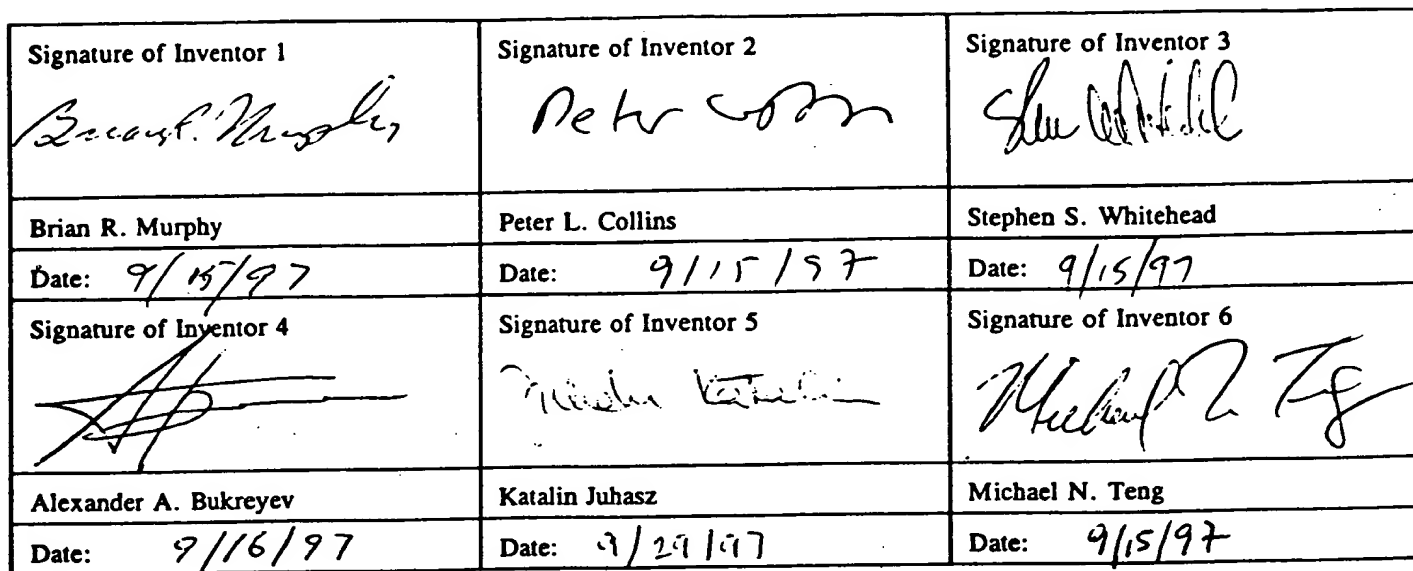 Signature of Inventor 1
Signature of Inventor 2
Signature of Inventor 3
Peter
Brian R. Murphy
Peter L. Collins
Stephen S. Whitehead
Date: 9/15/97
Date: 9/15/97
Date: 9/15/97
Signature of Inventor 4
Signature of Inventor 5
Signature of Inventor 6
Michael N. Teng
Alexander A. Bukreyev
Katalin Juhasz
Michael N. Teng
Date: 9/16/97
Date: 9/29/97
Date: 9/15/97